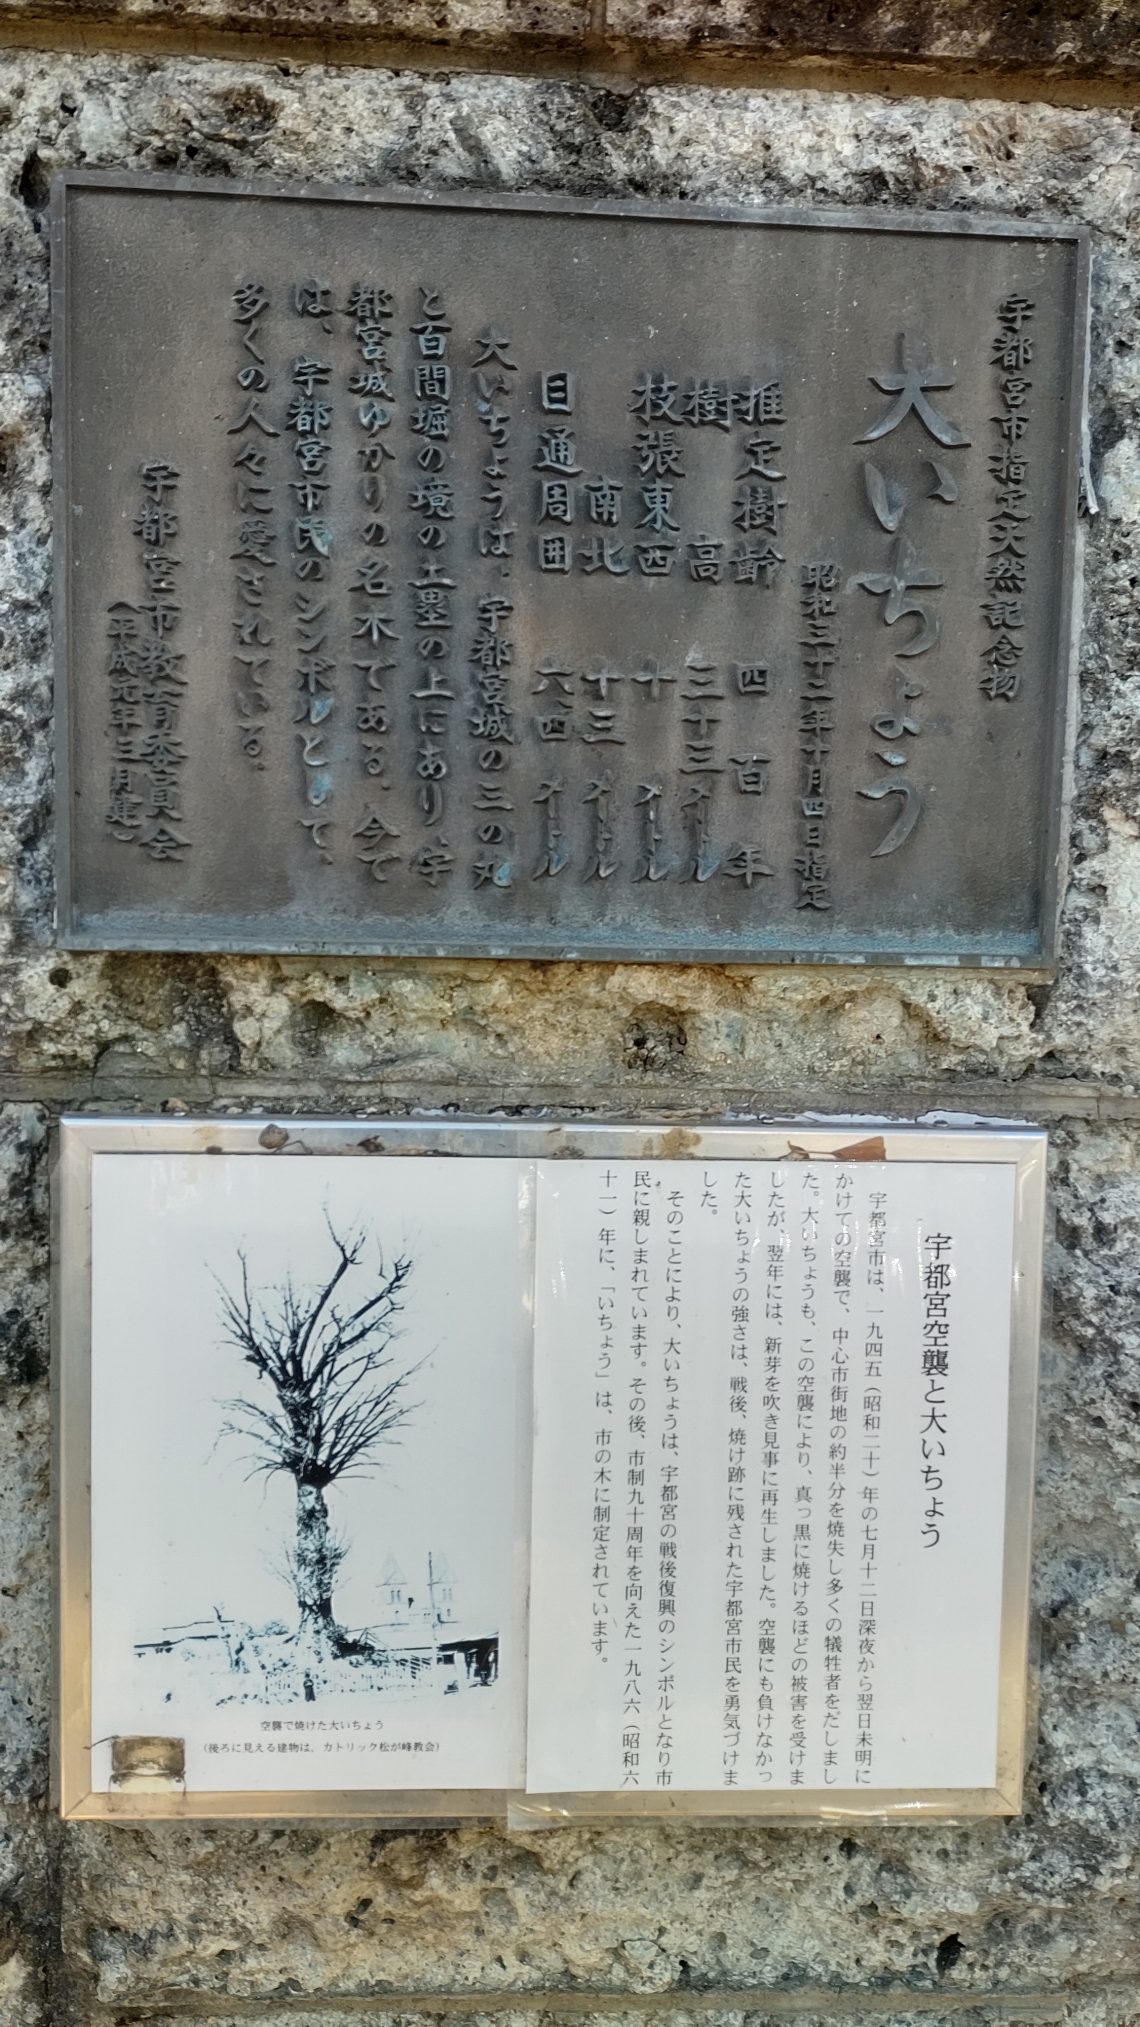 宇都宮市指定天然記念物
大いちょう
昭和三十二年十月四日指定
推定樹齢 四百年
樹高 三十三メートル
枝張東西 十メートル
南北 十三メートル
目通周囲 六四メートル
大いちょうは、宇都宮城の三の丸
と百間堀の境の土塁の上にあり、宇
都宮城ゆかりの名木である。今で
は、宇都宮市民のシンボルとして、
多くの人々に愛されている。
宇都宮市教育委員会
(平成元年三月建)
宇都宮空襲と大いちょう
宇都宮市は、一九四五(昭和二十)年の七月十二日深夜から翌日未明に
かけての空襲で、中心市街地の約半分を焼失し多くの犠牲者をだしまし
た。大いちょうも、この空襲により、真っ黒に焼けるほどの被害を受けま
したが、翌年には、新芽を吹き見事に再生しました。空襲にも負けなかっ
た大いちょうの強さは、戦後、焼け跡に残された宇都宮市民を勇気づけま
した。
そのことにより、大いちょうは、宇都宮の戦後復興のシンボルとなり市
民に親しまれています。その後、市制九十周年を向えた一九八六(昭和六
十一)年に、「いちょう」は、市の木に制定されています。
空襲で焼けた大いちょう
(後ろに見える建物は、カトリック松が峰教会)